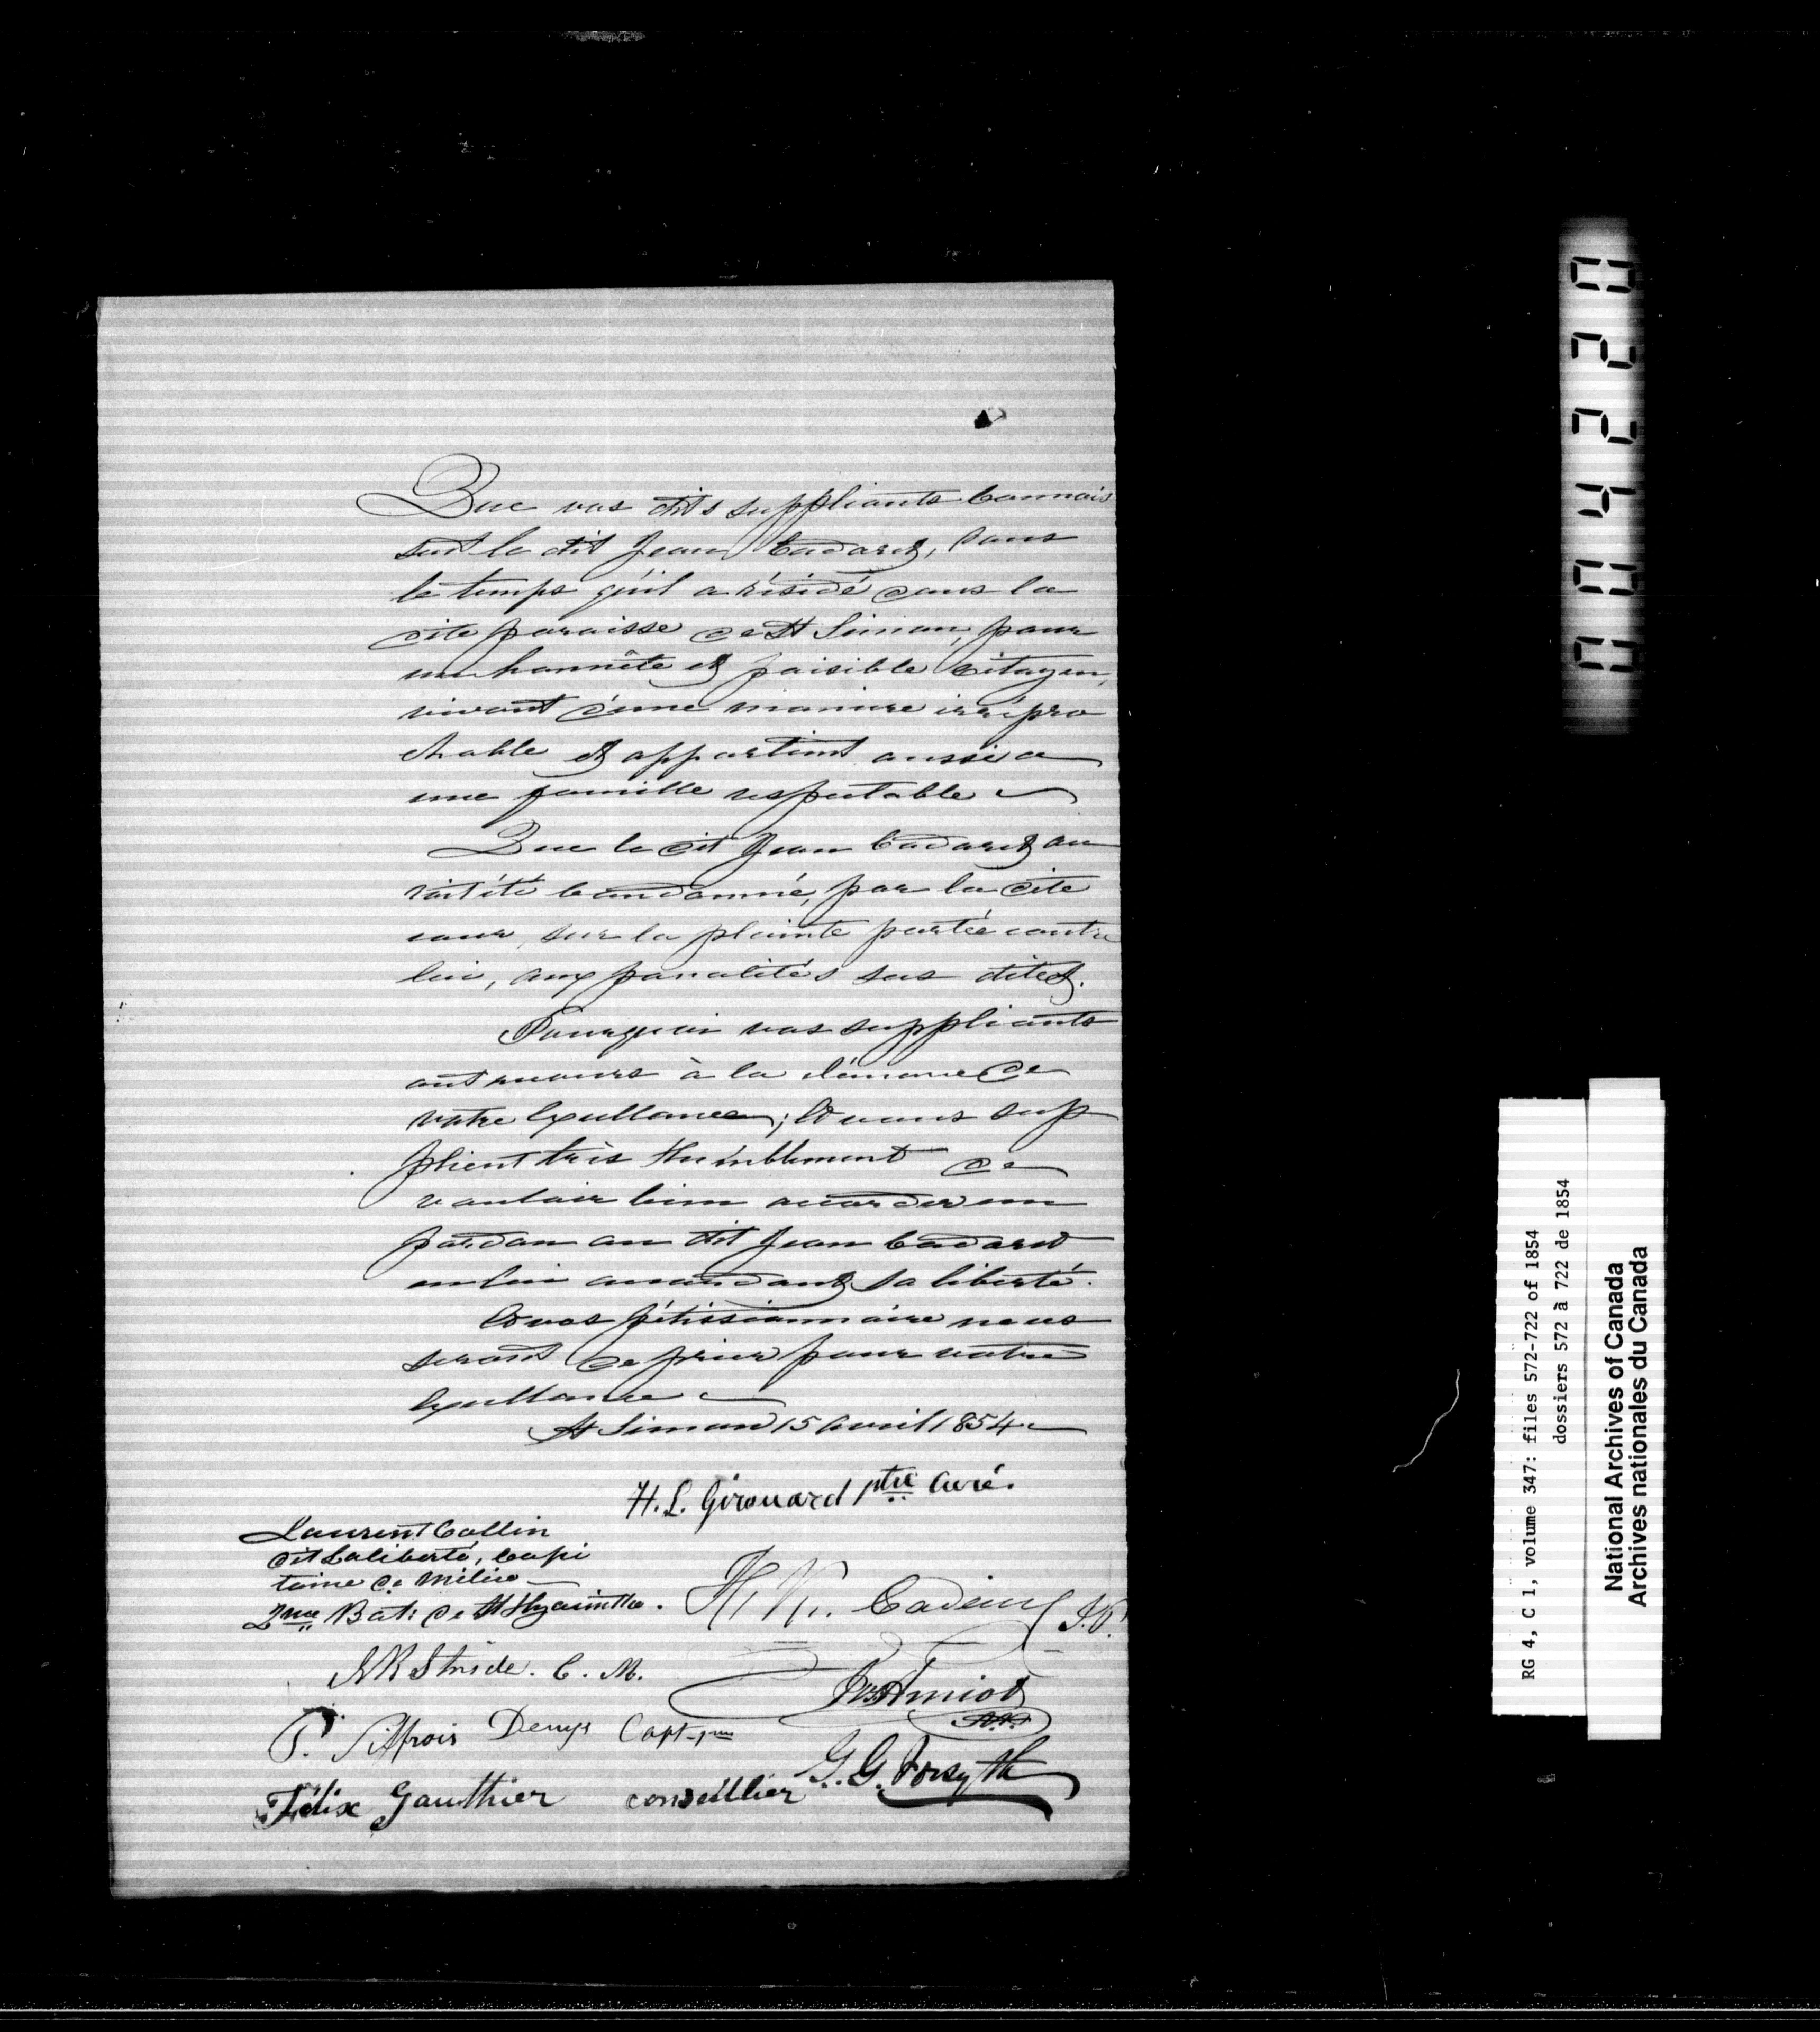 Que vos dits suppliants Connais
sent le dit Jean Cadaret, dans
le temps qu'il a résidé dans la
dite paroisse de St Simon, pour
un honnête et paisible Citoyen,
vivant d'une maniere irrépro
chable et appartient aussi a
une famille respectable
Que le dit Jean Cadaret au
rait été Condamné, par la dite
cour, sur la plainte portée contre
lui, aux panalités sus dites.
Pourquoi vos suppliants
ont recours à la clémence de
votre Excellence; Et vous sup
plient très Humblement de
vouloir bien accorder un
pardon au dit Jean Cadaret
en lui accordant sa liberté.
Et vos pétissionnaire ne ces
seront de prier pour votre
Excellence
St Simon 15 Avril 1854
H. L. Girouard ptre Curé.
Laurent Collin
dit Laliberté, Capi
taine de Milice
2me Bat: de St Hyacinthe.
H. V. Cadieux J.P.
Stride. C. M.
Jos Amiot
P. Denys Capt
G. G. Forsyth
Félix Gauthier conseillier
022400
RG 4, C 1, volume 347: files 572-722 of 1854
dossiers 572 à 722 de 1854
National Archives of Canada
Archives nationales du Canada